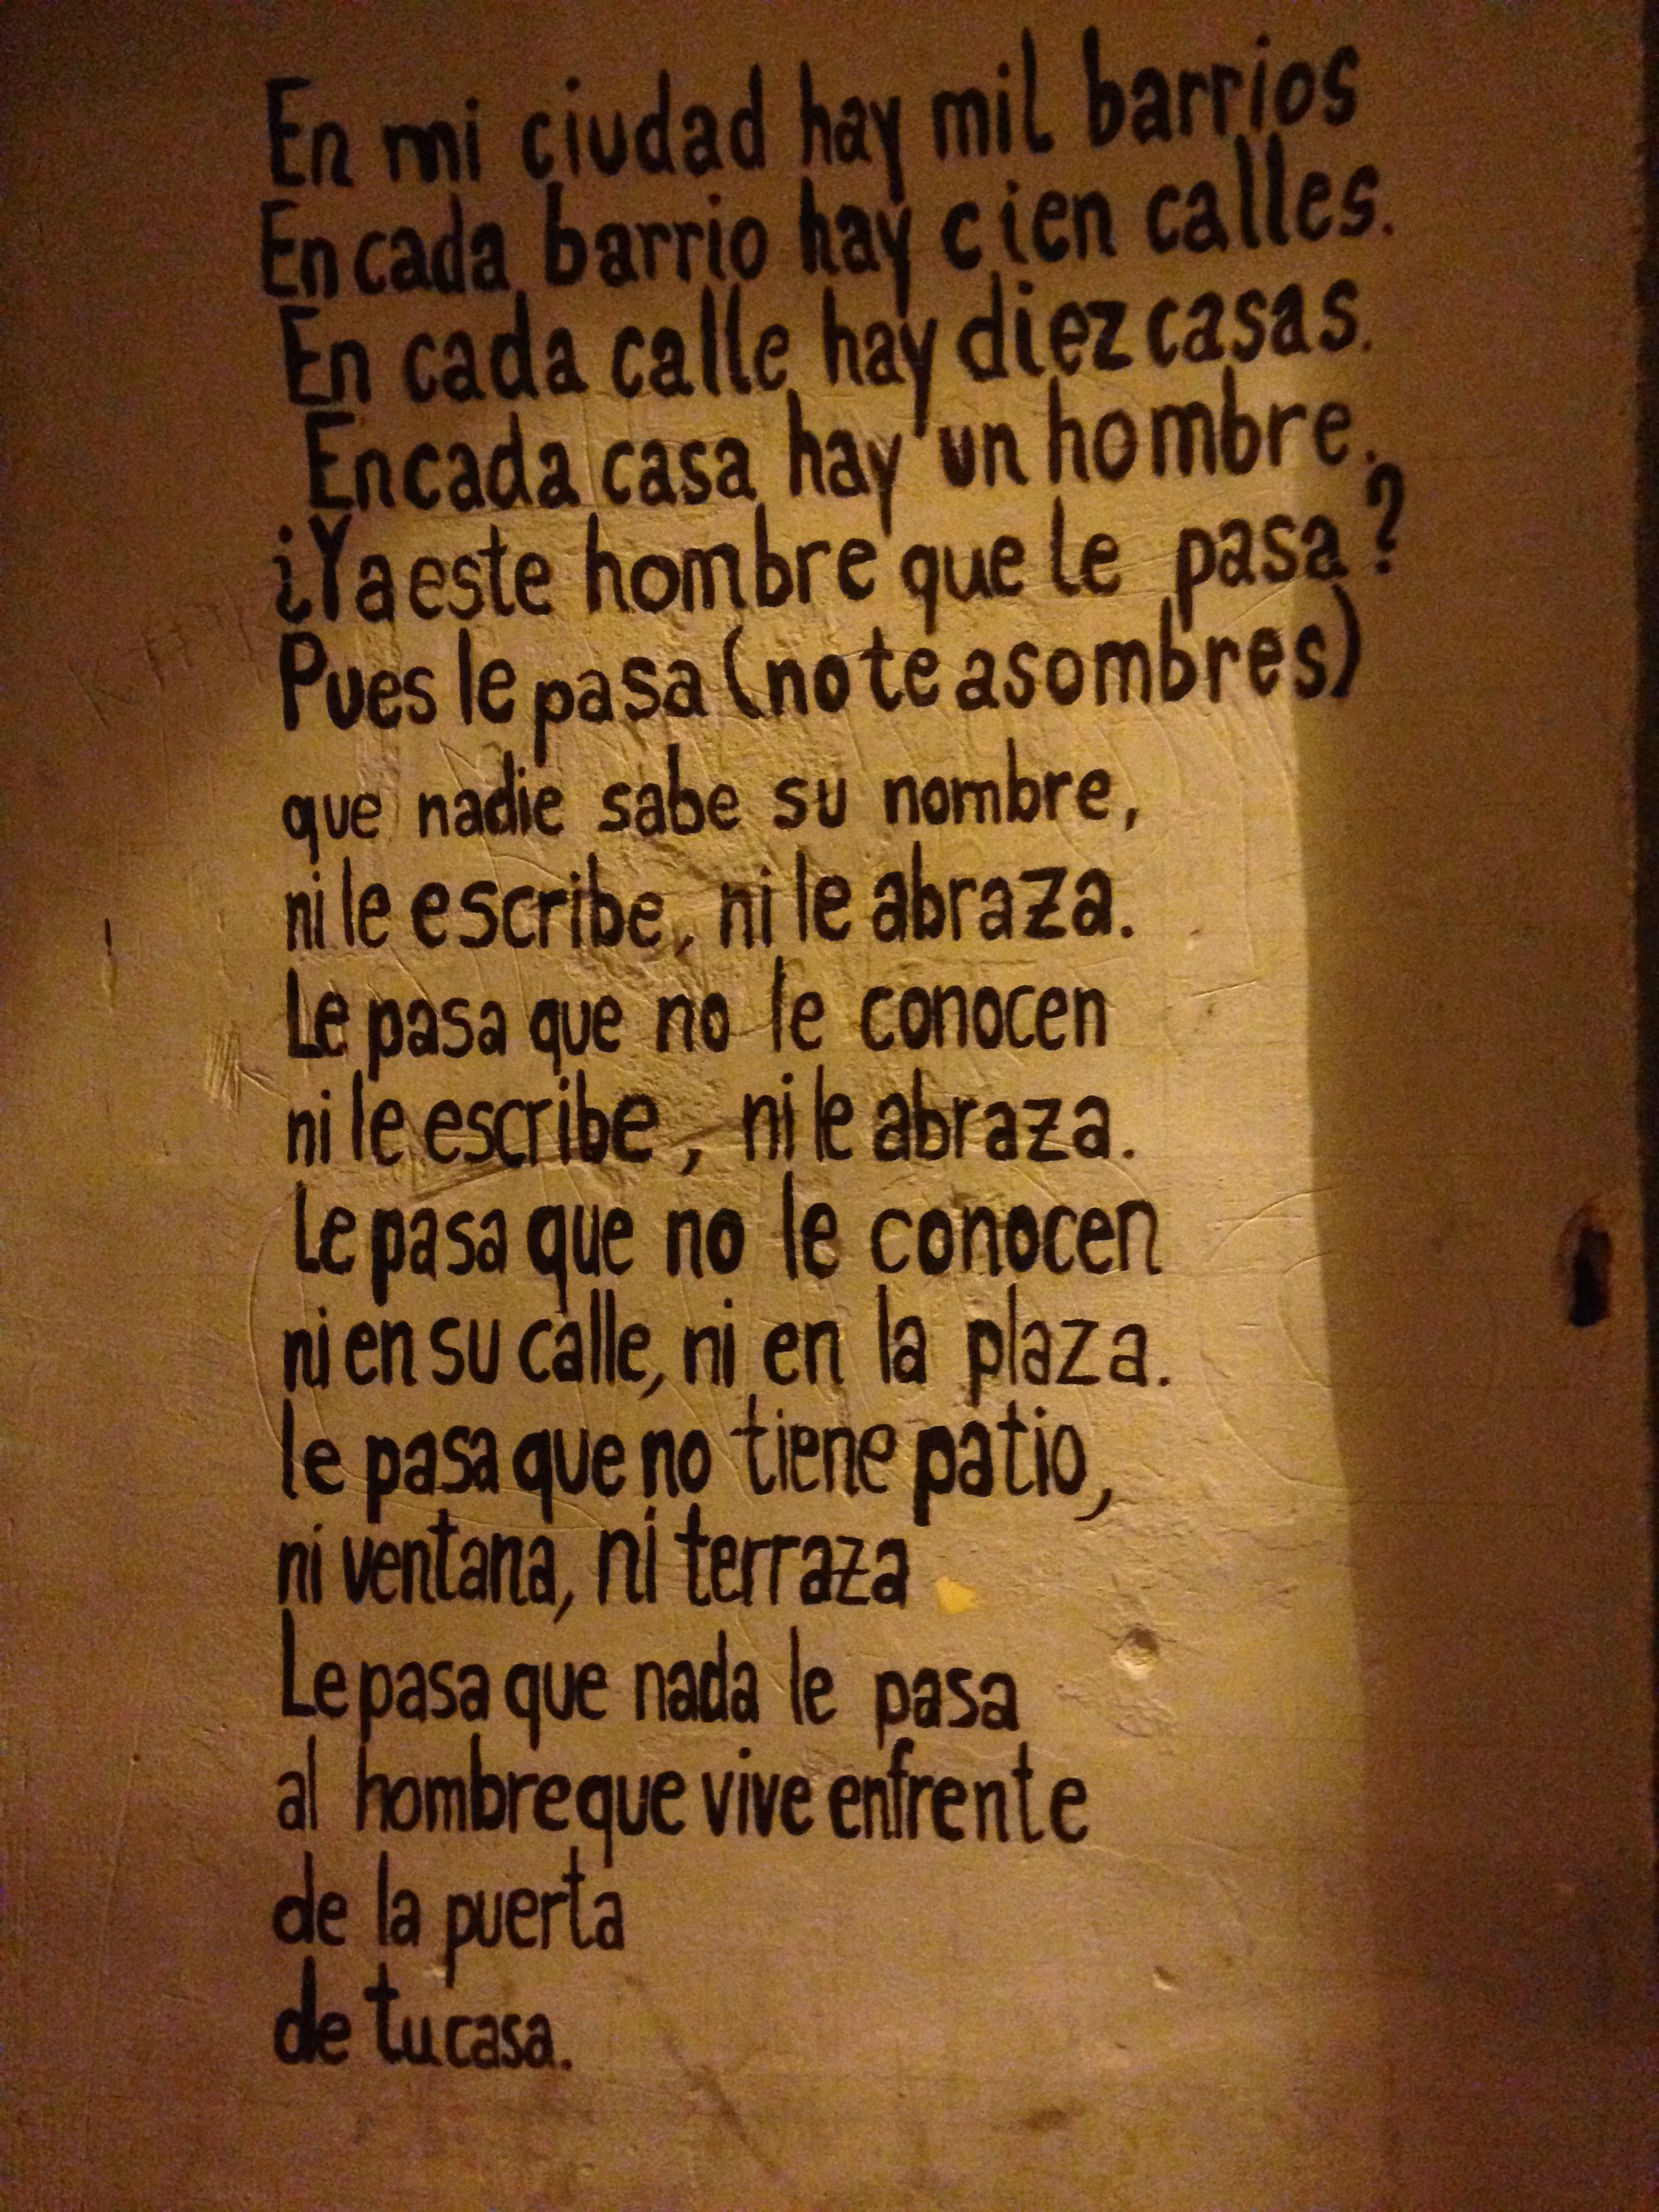 En mi ciudad hay mil barrios
En cada barrio hay cien calles.
En cada calle hay diez casas.
En cada casa hay un hombre.
¿Y a este hombre que le pasa?
Pues le pasa (no te asombres)
que nadie sabe su nombre,
ni le escribe, ni le abraza.
Le pasa que no le conocen
ni le escribe, ni le abraza.
Le pasa que no le conocen
ni en su calle, ni en la plaza.
le pasa que no tiene patio,
ni ventana, ni terraza
Le pasa que nada le pasa
al hombre que vive enfrente
de la puerta
de tu casa.